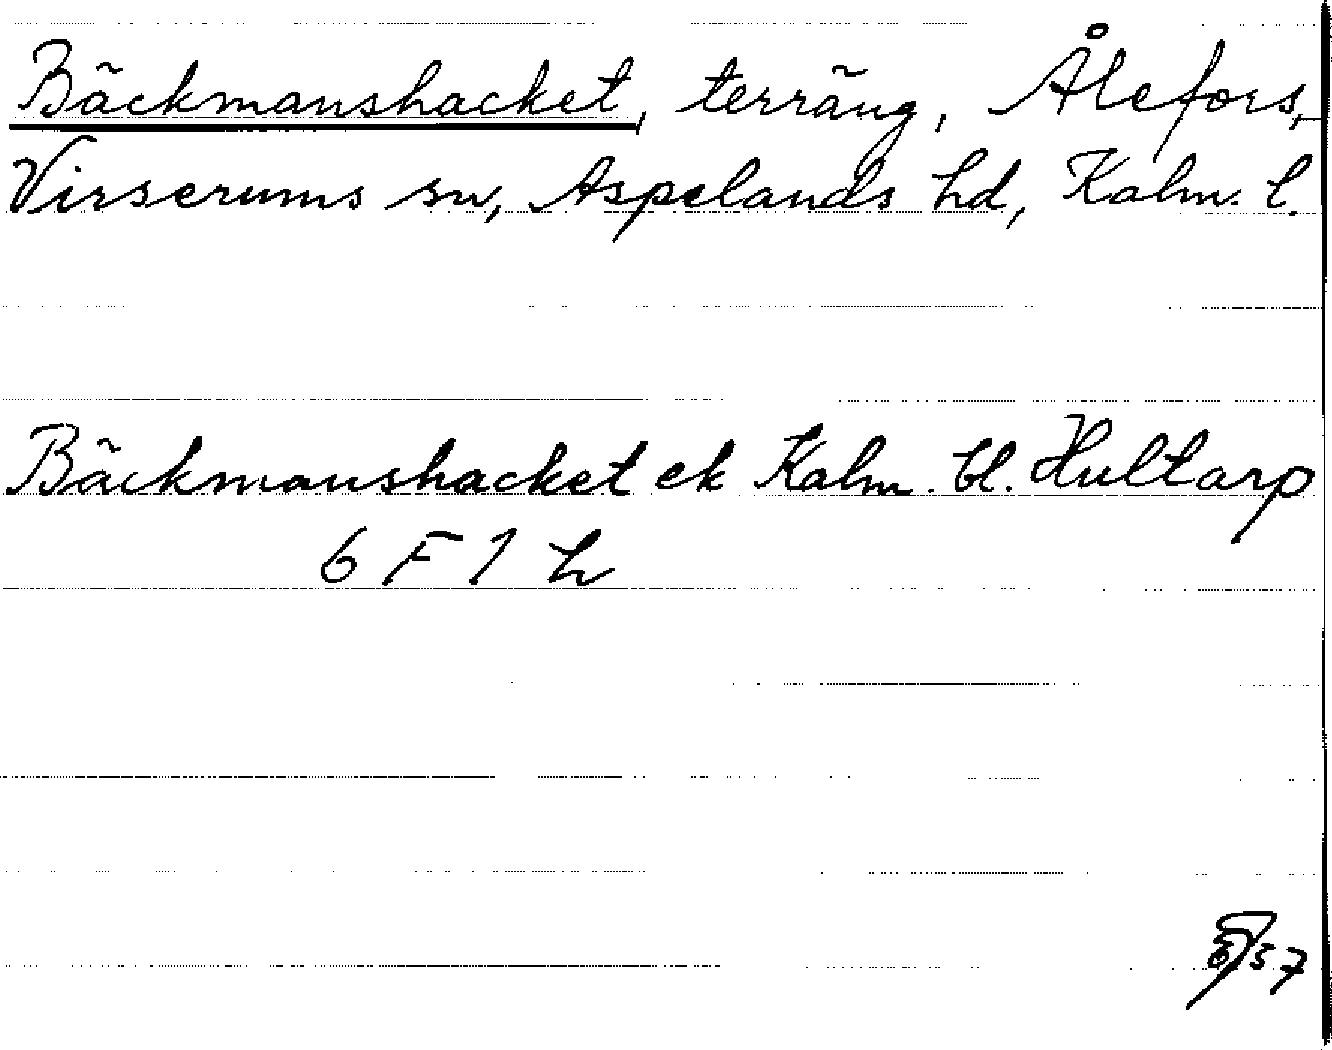 Bäckmanshacket, terräng, Ålefors,
Virserums sn, Aspelands hd, Kalm. l.
Bäckmanshacket ek Kalm. bl. Hultarp
6 F 1 h
57